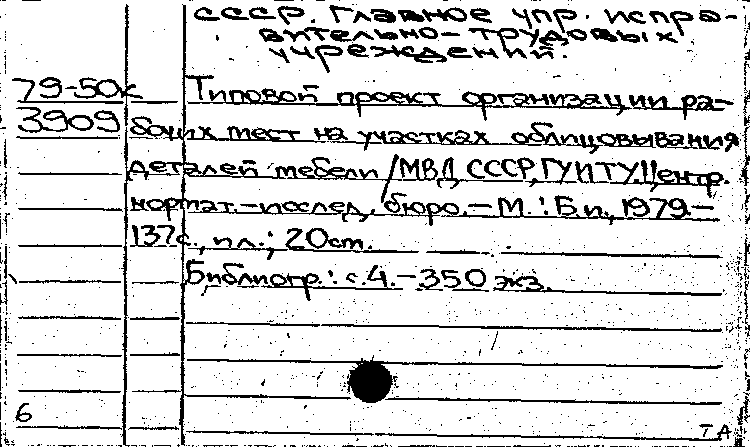 СССР. Главное упр. испра-
вительно-трудовых
учреждений.
79-50к Типовой проект организации ра-
3909 бочих мест на участках облицовывания
деталей мебели / МВД СССР, ГУИТУ. Центр.
нормат.-исслед. бюро. — М. : Б.и., 1979. —
137с., ил.; 20см.
Библиогр.: с.4. — 350 экз.
6
ТА